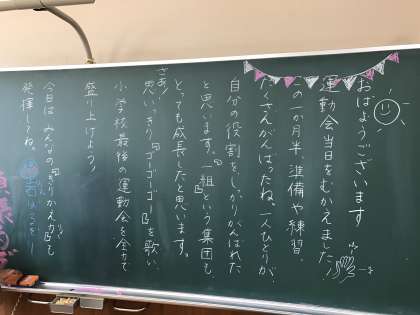 おはようございます
運動会当日をむかえました。
この一か月半、準備や練習、
たくさんがんばったね。一人ひとりが、
自分の役割をしっかりがんばれた
と思います。一組という集団も、
とっても成長したと思います。
さあ!
思いっきり『ゴーゴーゴー』を歌い、
小学校最後の運動会を全力で
盛り上げよう!
今日は、みんなの『きりかえ力』も
発揮してね。